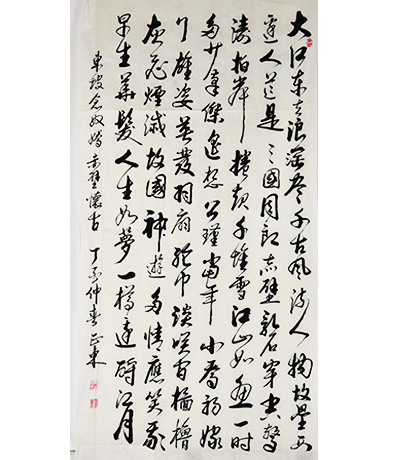 大江东去浪淘盡千古風流人物故壘西
邊人道是三國周郎赤壁亂石穿空驚
濤拍岸捲起千堆雪江山如畫一時
多少豪傑遙想公瑾當年小喬初嫁
了雄姿英發羽扇綸巾談笑間檣櫓
灰飛煙滅故國神遊多情應笑我
早生華髮人生如夢一樽還酹江月
東坡念奴嬌赤壁懷古 丁亥仲春正東